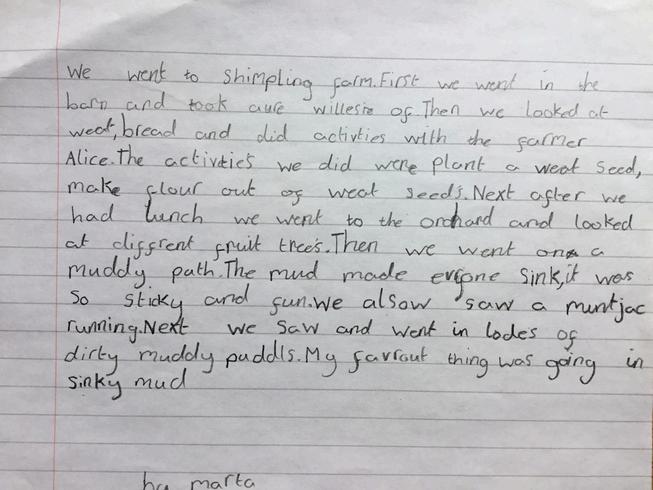 We went to Shimpling farm.First we went in the
barn and took aure willesie of.Then we looked at
weat,bread and did activties with the farmer
Alice.The activities we did were plant a weat seed,
make flour out of weat seeds.Next after we
had lunch we went to the orchard and looked
at diffrent fruit trees.Then we went on a
muddy path.The mud made evryone sink,it was
So sticky and fun.We alsow saw a muntjac
running.Next we saw and went in lodes of
dirty muddy puddls.My favrout thing was going in
sinky mud
by marta